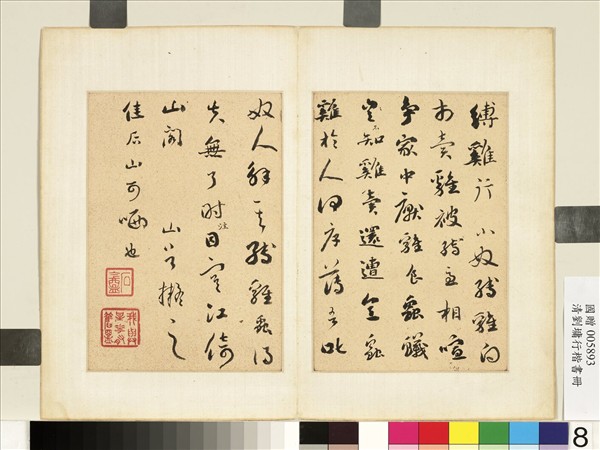 縛雞行 小奴縛雞向
市賣雞被縛急相喧
爭家中厭雞食蟲蟻
豈知雞賣還遭烹蟲
雞於人何厚薄吾叱
奴人解其縛雞蟲得
失無了時注目寒江倚
山閣 山谷擬之
佳后山可哂也
石庵
國贈 005893
清劉墉行楷書冊
8